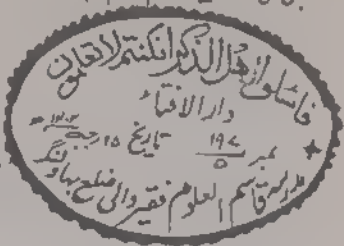 فاسئلوا اهل الذکر ان کنتم لا تعلمون
دار الافتاء
نمبر ۱۹۷/۵ تاریخ ۱۵ رجب
مدرسہ قاسم العلوم فقیر والی ضلع بہاولنگر